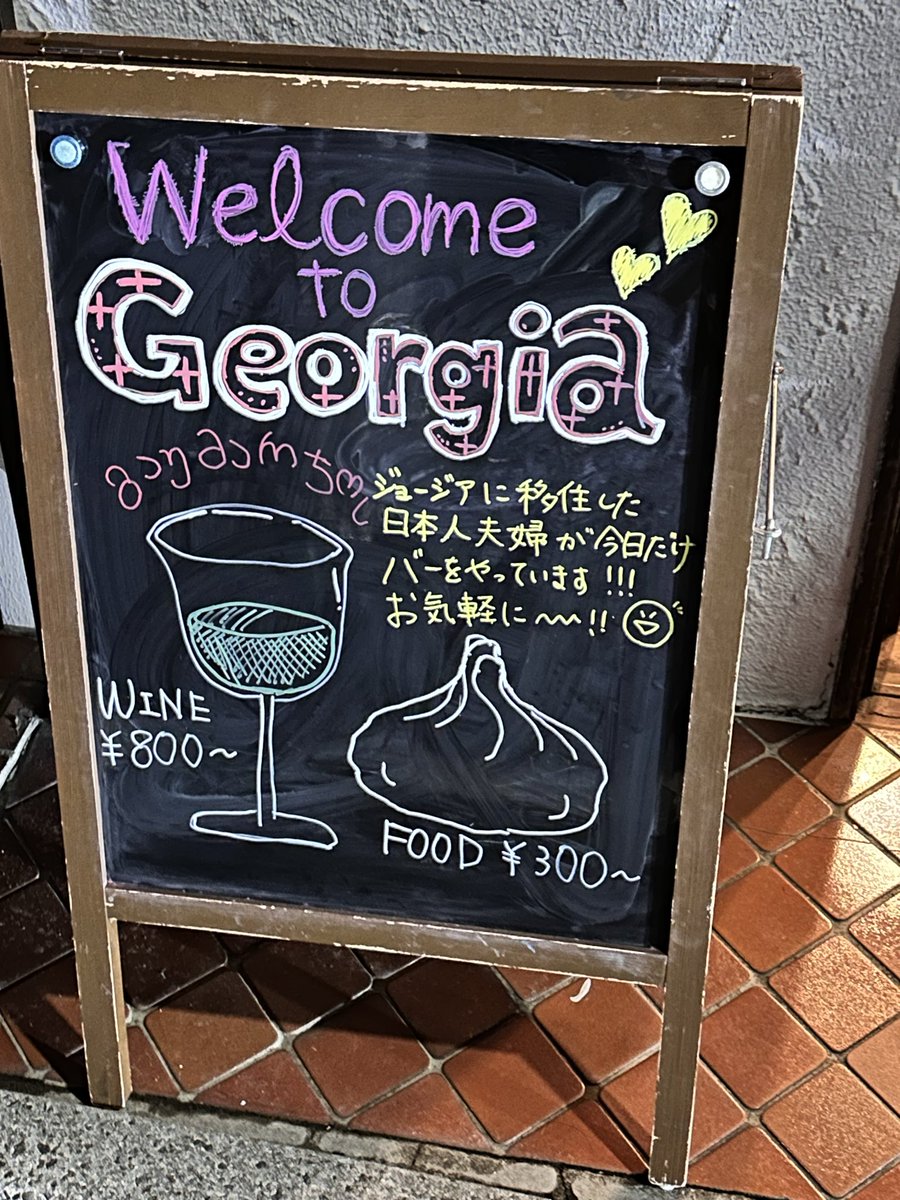 Welcome
TO
Georgia
გაუმარჯოს
ジョージアに移住した
日本人夫婦が今日だけ
バーをやっています!!!
お気軽に〜!!
WINE
¥800~
FOOD ¥300~